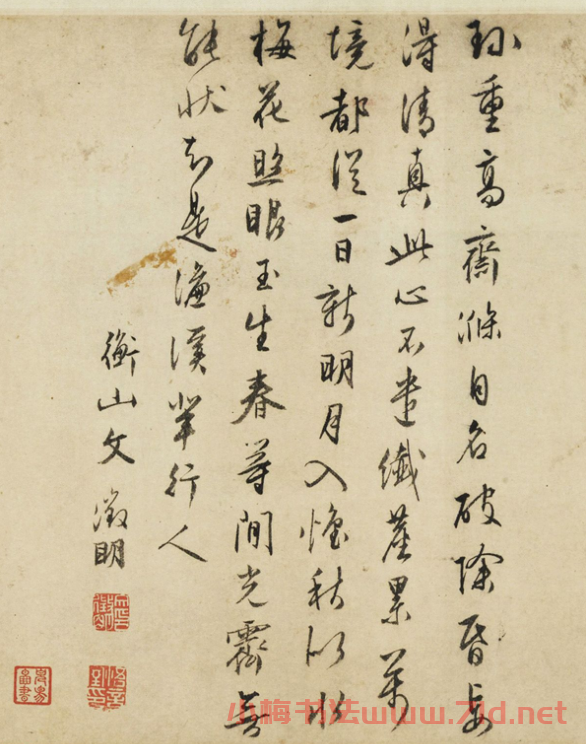 珎重高齋滌自名破除昏妄
得清真此心不遣纖塵累萬
境都從一日新明月入懷秋似水
梅花照眼玉生春等閒光霽無
能狀知是濂溪輩行人
衡山文徵明
悟言室印
小梅书法www.7ld.net